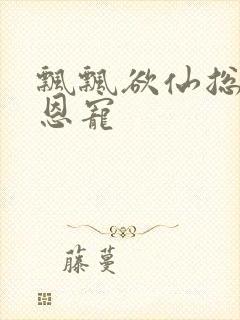 飘飘欲仙总
恩宠
藤蔓